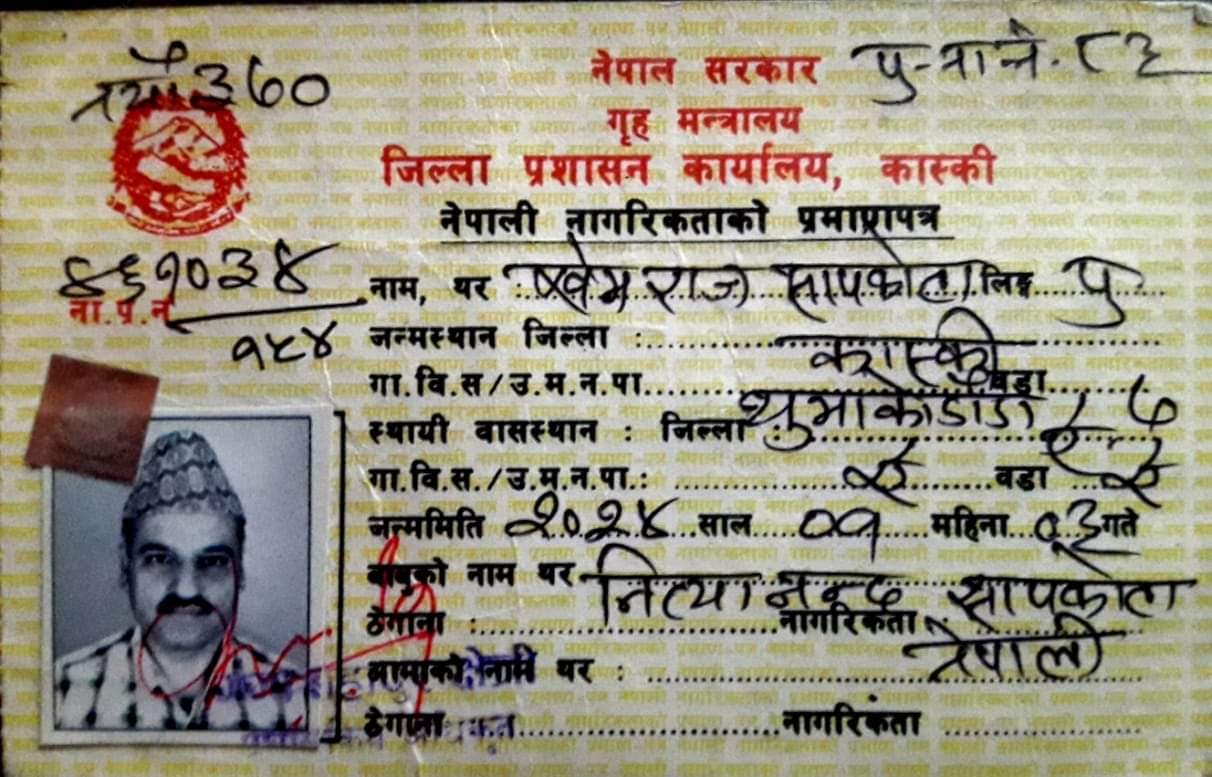 नेपाल सरकार
३६०
गृह मन्त्रालय
जिल्ला प्रशासन कार्यालय, कास्की
नेपाली नागरिकताको प्रमाणपत्र
४६१०३४
ना.प्र.नं
१५४
नाम, थर : खेमराज सापकोटा लिङ्ग पु
जन्मस्थान जिल्ला : कास्की
गा.वि.स/उ.म.न.पा. वडा
स्थायी वासस्थान : जिल्ला
गा.वि.स./उ.म.न.पा.: वडा
जन्ममिति २०२४ साल ०१ महिना ०३ गते
बाबुको नाम थर नित्यानन्द सापकोटा
ठेगाना : नागरिकता नेपाली
आमाको नाम थर :
ठेगाना नागरिकता